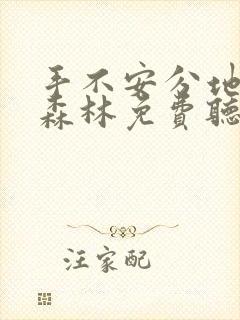 手不安分地
森林免费聽
汪家配